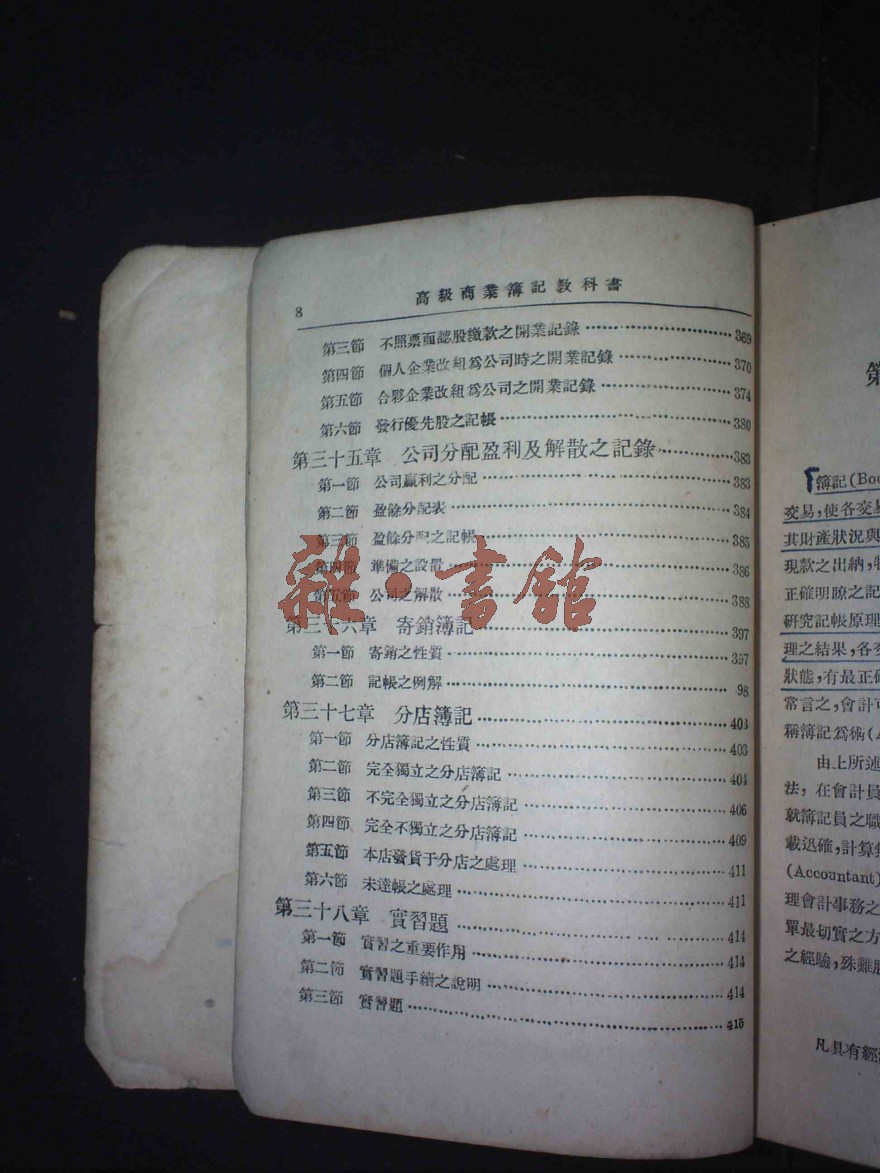 8 高級商業簿記教科書
第三節 不照票面認股繳款之開業記錄 369
第四節 個人企業改組爲公司時之開業記錄 370
第五節 合夥企業改組爲公司之開業記錄 374
第六節 發行優先股之記帳 380
第三十五章 公司分配盈利及解散之記錄 383
第一節 公司贏利之分配 383
第二節 盈餘分配表 384
第三節 盈餘分配之記帳 385
第四節 準備之設置 386
第五節 公司之解散 388
第三十六章 寄銷簿記 397
第一節 寄銷之性質 397
第二節 記帳之例解 98
第三十七章 分店簿記 403
第一節 分店簿記之性質 403
第二節 完全獨立之分店簿記 404
第三節 不完全獨立之分店簿記 406
第四節 完全不獨立之分店簿記 409
第五節 本店發貨于分店之處理 411
第六節 未達帳之處理 411
第三十八章 實習題 414
第一節 實習之重要作用 414
第二節 實習題手續之說明 414
第三節 實習題 415
雜·書館
第
簿記(Boo
交易,使各交易
其財產狀況與
現款之出納,
正確明瞭之記
研究記帳原理
理之結果,各
狀態,有最正確
常言之,會計可
稱簿記爲術(A
由上所述
法,在會計員
就簿記員之職
載迅確,計算
(Accountant)
理會計事務之
單最切實之方
之經驗,殊難
凡具有經